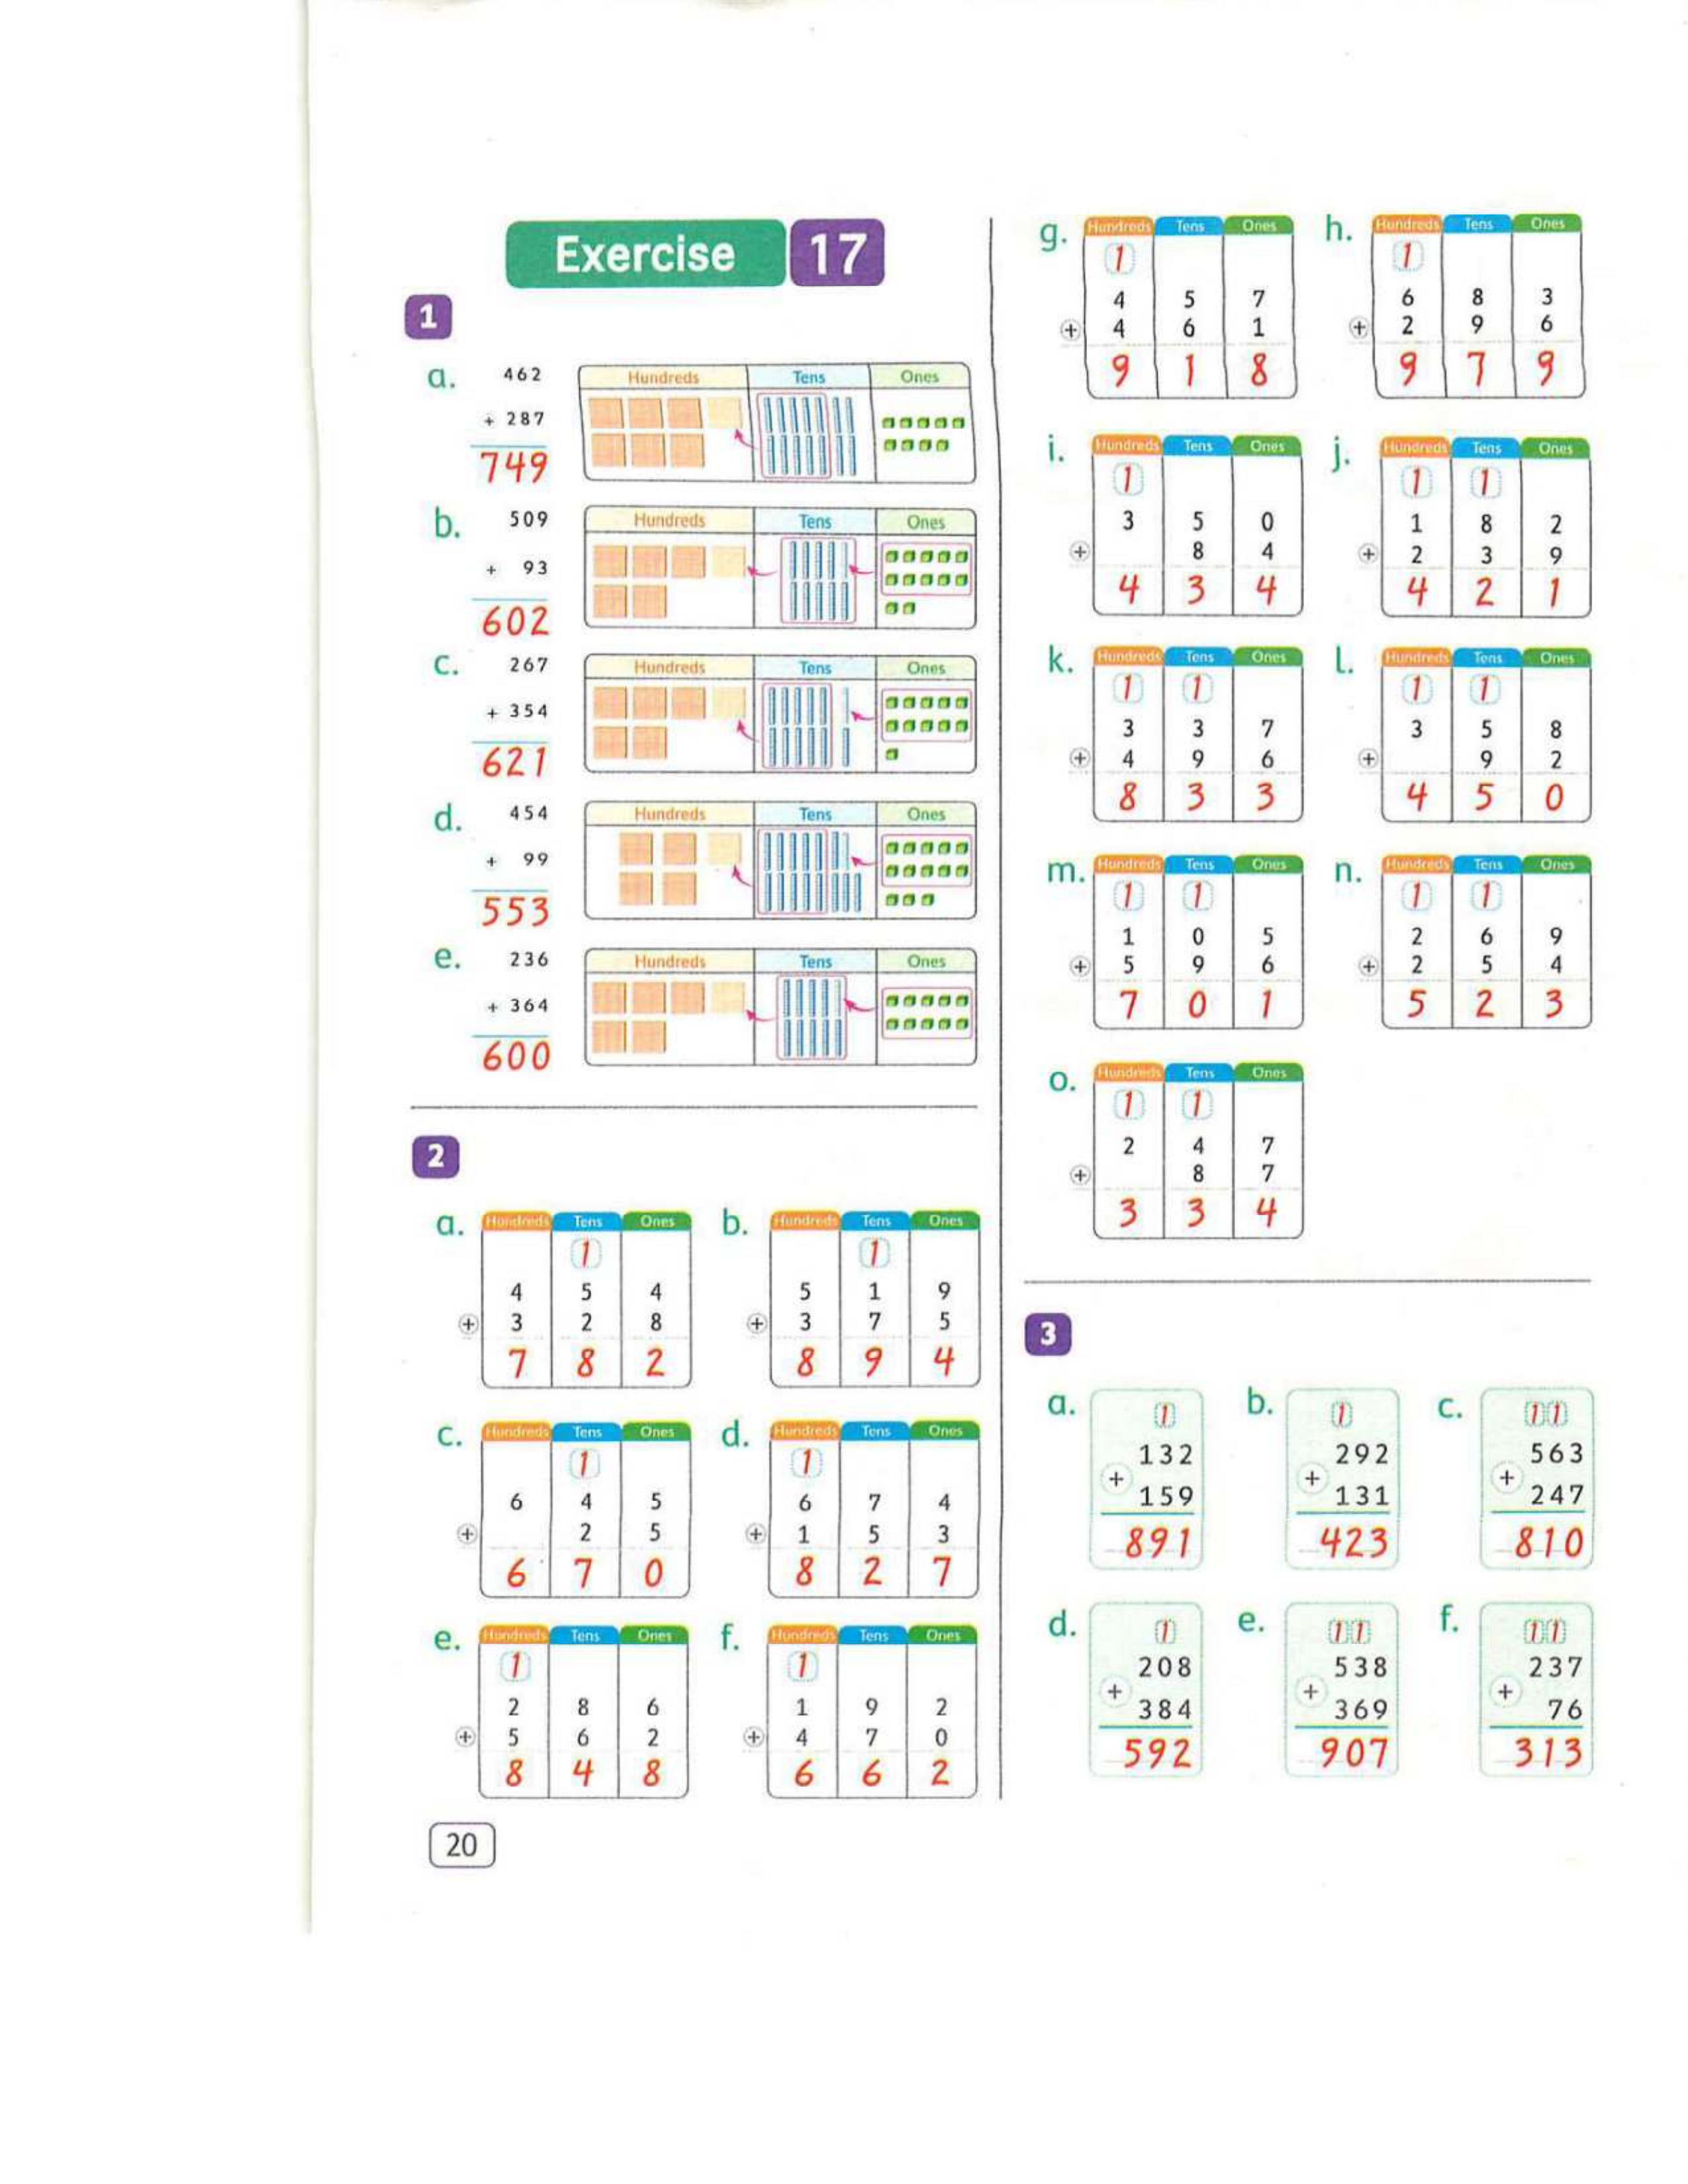 Exercise 17
1
a. 462
+ 287
749
Hundreds Tens Ones
b. 509
+ 93
602
Hundreds Tens Ones
c. 267
+ 354
621
Hundreds Tens Ones
d. 454
+ 99
553
Hundreds Tens Ones
e. 236
+ 364
600
Hundreds Tens Ones
2
a. Hundreds Tens Ones
1
4 5 4
+ 3 2 8
7 8 2
b. Hundreds Tens Ones
1
5 1 9
+ 3 7 5
8 9 4
c. Hundreds Tens Ones
1
6 4 5
+ 2 5
6 7 0
d. Hundreds Tens Ones
1
6 7 4
+ 1 5 3
8 2 7
e. Hundreds Tens Ones
1
2 8 6
+ 5 6 2
8 4 8
f. Hundreds Tens Ones
1
1 9 2
+ 4 7 0
6 6 2
20
g. Hundreds Tens Ones
1
4 5 7
+ 4 6 1
9 1 8
h. Hundreds Tens Ones
1
6 8 3
+ 2 9 6
9 7 9
i. Hundreds Tens Ones
1
3 5 0
+ 8 4
4 3 4
j. Hundreds Tens Ones
1 1
1 8 2
+ 2 3 9
4 2 1
k. Hundreds Tens Ones
1 1
3 3 7
+ 4 9 6
8 3 3
l. Hundreds Tens Ones
1 1
3 5 8
+ 9 2
4 5 0
m. Hundreds Tens Ones
1 1
1 0 5
+ 5 9 6
7 0 1
n. Hundreds Tens Ones
1 1
2 6 9
+ 2 5 4
5 2 3
o. Hundreds Tens Ones
1 1
2 4 7
+ 8 7
3 3 4
3
a. 1
132
+
159
891
b. 1
292
+
131
423
c. 11
563
+
247
810
d. 1
208
+
384
592
e. 11
538
+
369
907
f. 11
237
+
76
313